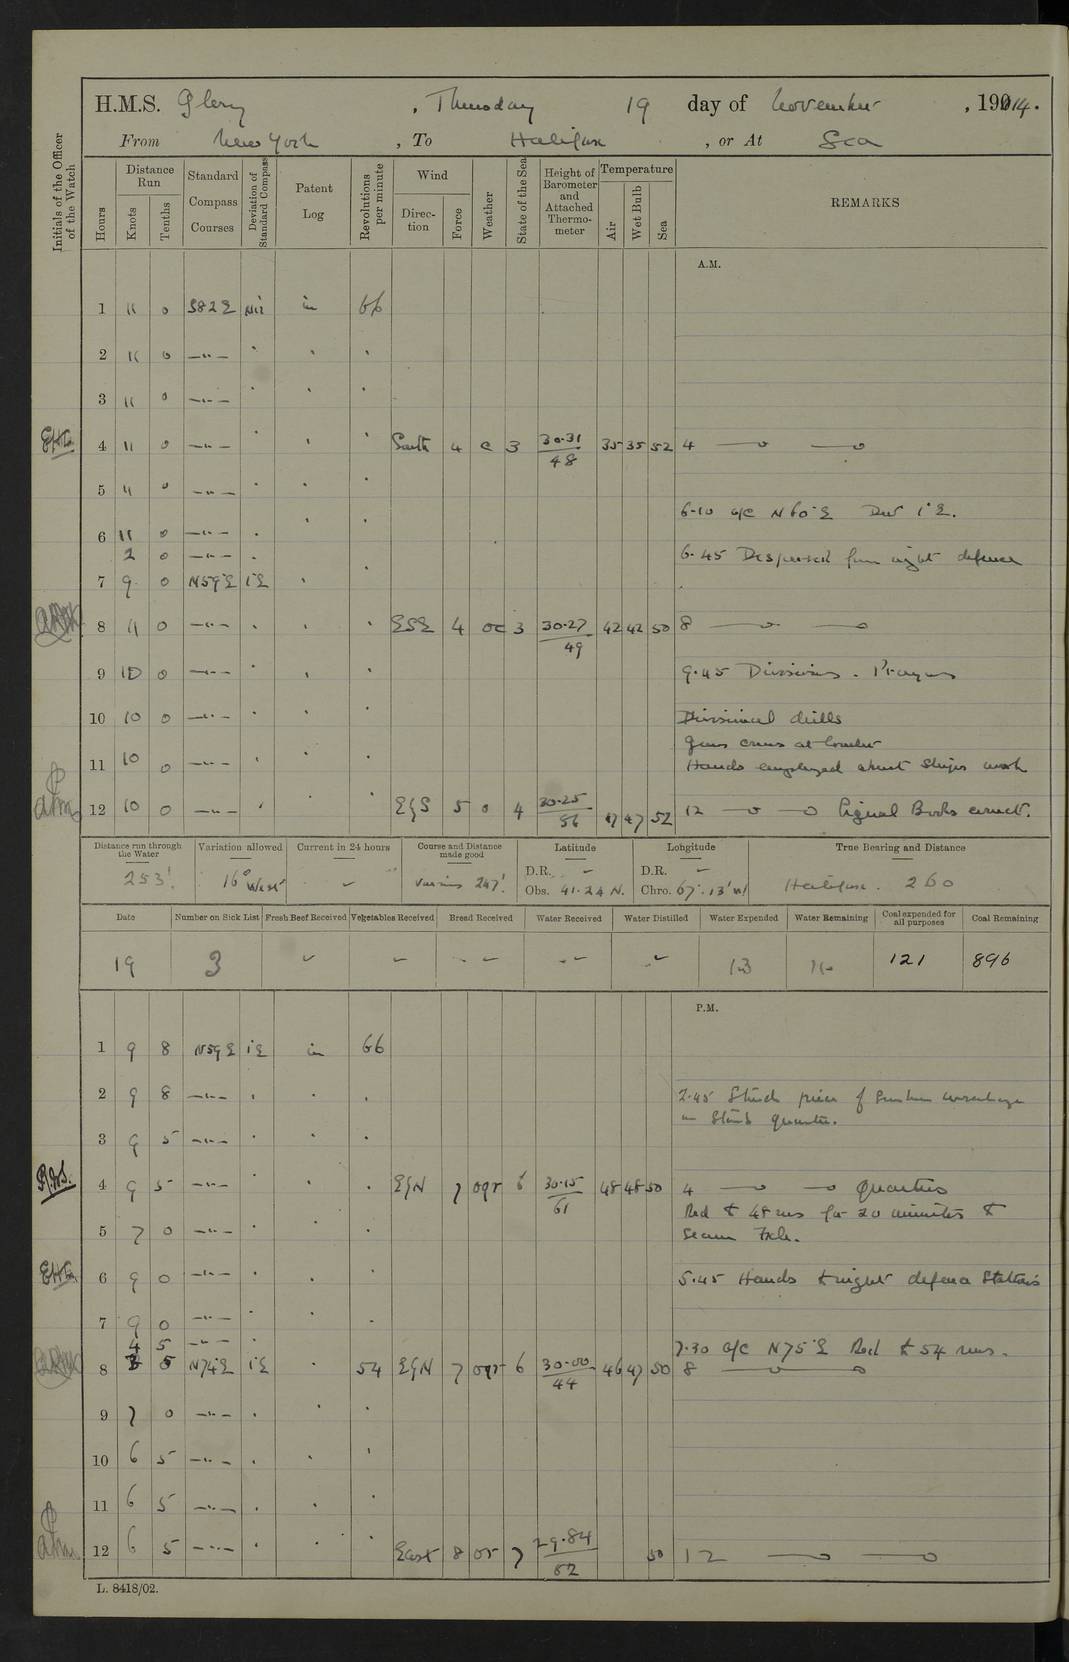 H.M.S. Glory , Thursday 19 day of November , 1914.
From New York , To Halifax , or At Sea
Initials of the Officer of the Watch
Hours Distance Run Knots Tenths Standard Compass Courses Deviation of Standard Compass Patent Log Revolutions per minute Wind Direction Force Weather State of the Sea Height of Barometer and Attached Thermometer Temperature Air Wet Bulb Sea REMARKS
A.M.
1 11 0 S82E Nil in 66
2 11 0 —"— " " "
3 11 0 —"— " "
4 11 0 —"— " " " South 4 c 3 30.31 48 35 35 52 4
5 11 0 —"— " " "
6.10 a/c N60°E Dev 1°E.
6 11 0 —"— " " "
2 0 —"— " 6.45 Dispersed from night defence
7 9 0 N59°E 1°E " "
8 11 0 —"— " " " ESE 4 oc 3 30.27 49 42 42 50 8
9 10 0 —"— " " " 9.45 Divisions. Prayers
10 10 0 —"— " " " Divisional drills
Guns crews at loader
11 10 0 —"— " " " Hands employed about Ships work
12 10 0 —"— " " " E&S 5 o 4 30.25 56 47 47 52 12 Signal Books correct.
Distance run through the Water Variation allowed Current in 24 hours Course and Distance made good Latitude Longitude True Bearing and Distance
253' 16° West – various 247' D.R. – Obs. 41.24 N. D.R. – Chro. 67°.13' W Halifax. 260
Date Number on Sick List Fresh Beef Received Vegetables Received Bread Received Water Received Water Distilled Water Expended Water Remaining Coal expended for all purposes Coal Remaining
19 3 – – – – – 13 121 896
P.M.
1 9 8 N59E 1°E in 66
2 9 8 —"— " " " 2.45 Struck piece of sunken wreckage
on Starb quarter.
3 9 5 —"— " " "
4 9 5 —"— " " " E&N 7 oqr 6 30.15 61 48 48 50 4 Quarters
Red to 48 revs for 20 minutes to
5 7 0 —"— " " " secure Fxle.
6 9 0 —"— " " " 5.45 Hands to night defence Stations
7 9 0 —"— " " "
4 5 —"— " 7.30 a/c N75°E Red to 54 revs.
8 3 5 N74°E 1°E " 54 E&N 7 oqr 6 30.00 44 46 47 50 8
9 7 0 —"— " " "
10 6 5 —"— " " "
11 6 5 —"— " " "
12 6 5 —"— " " " East 8 or 7 29.84 52 50 12
L. 8418/02.